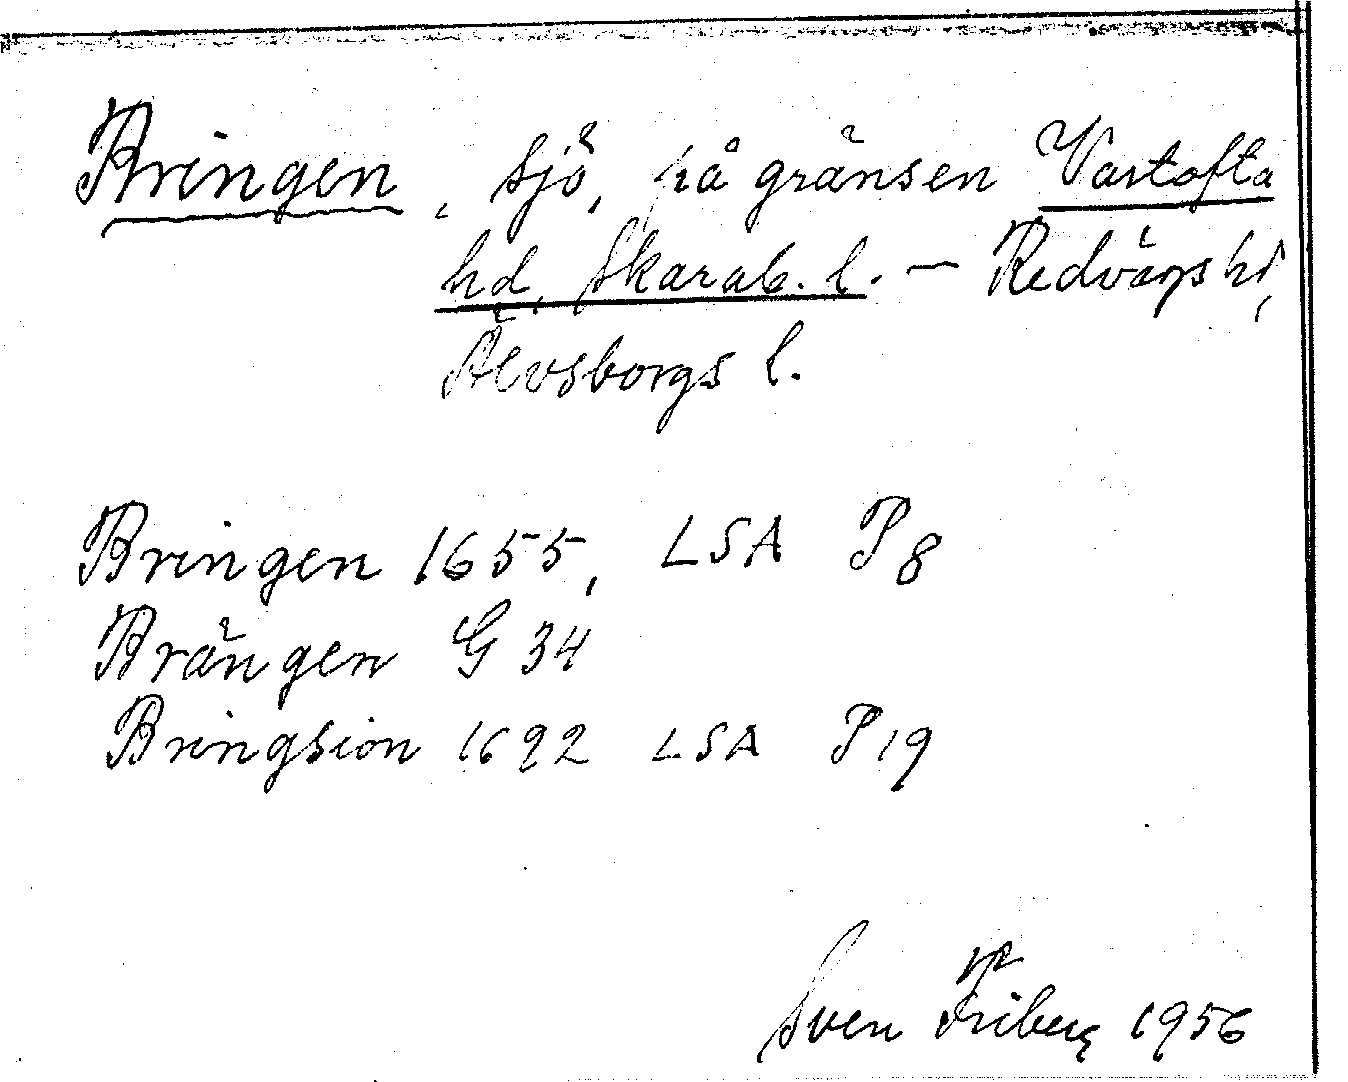 Bringen, sjö, på gränsen Vartofta
hd, Skarab. l. — Redvägs hd,
Älvsborgs l.
Bringen 1655, LSA P8
Brängen G 34
Bringsion 1692 LSA P19
Sven Friberg 1956